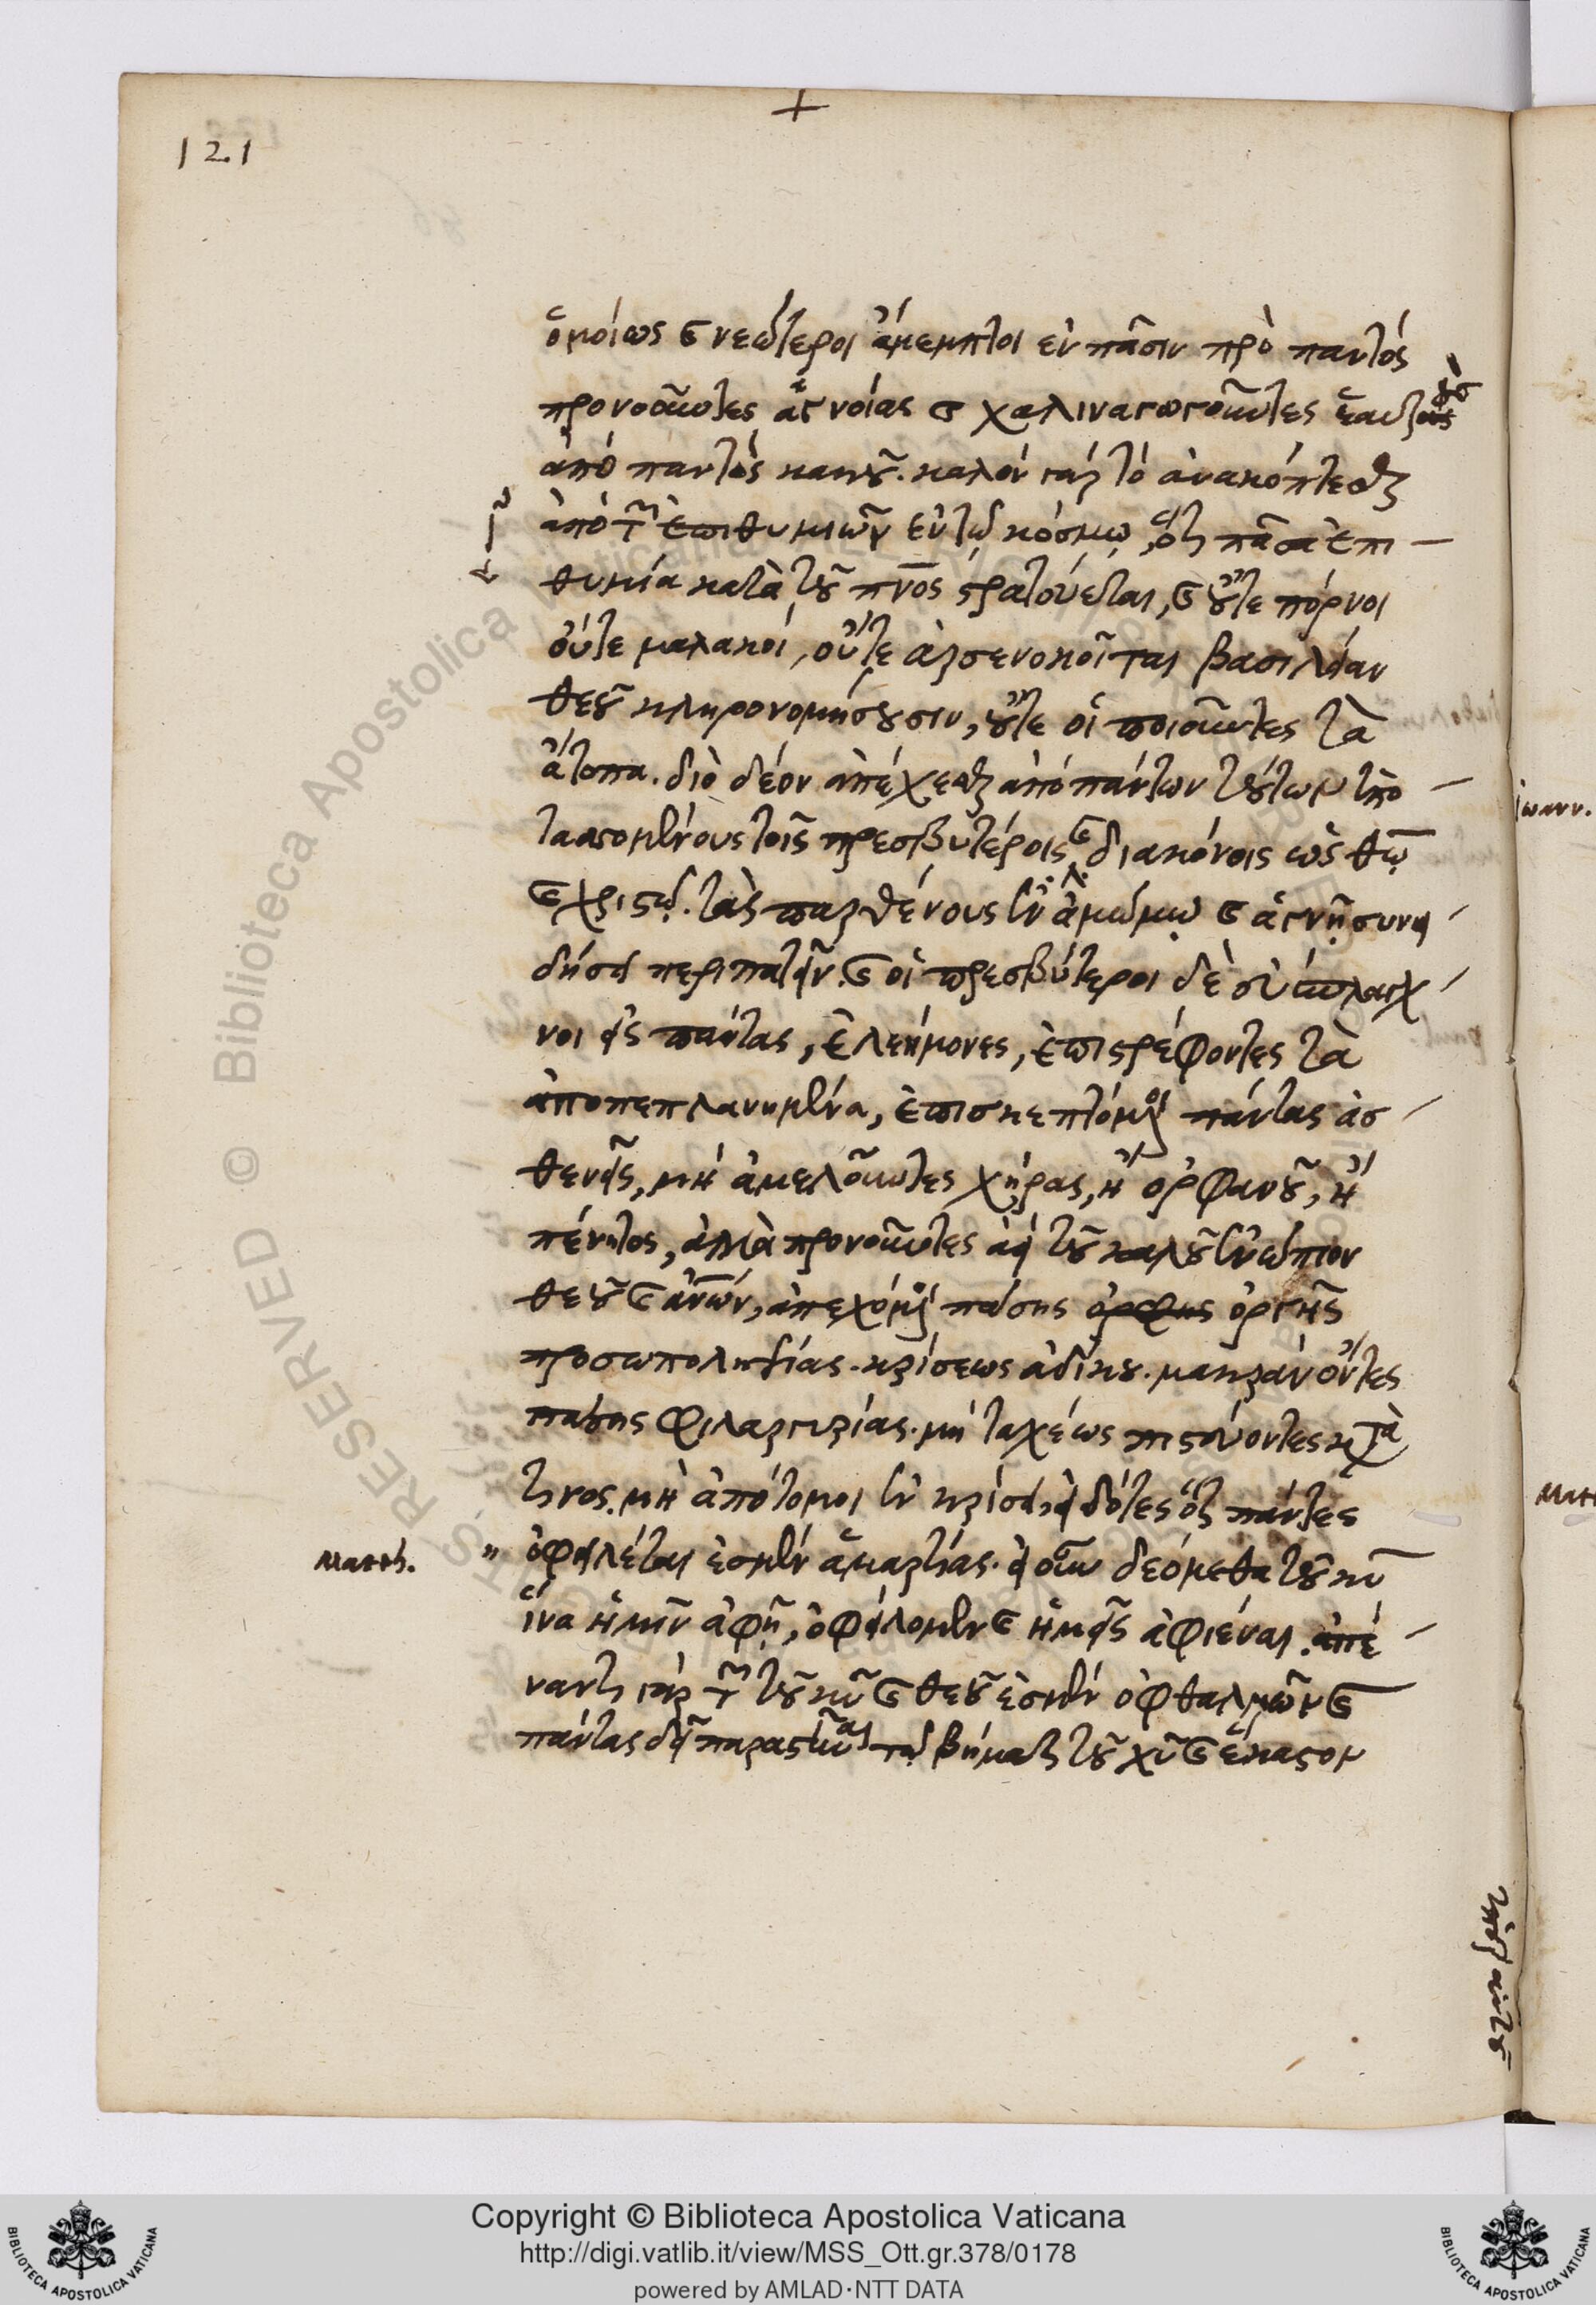 121
+
ὁμοίως ϛ νεώτεροι ἄμεμπτοι ἐν πᾶσιν πρὸ παντός
προνοοῦντες ἁγνοίας ϛ χαλιναγωγοῦντες ἑαυτοὺς
ἀπὸ παντὸς κακοῦ. καλὸν γὰρ τὸ ἀνακόπτεσθαι
ἀπὸ τῶν ἐπιθυμιῶν ἐν τῷ κόσμῳ, ὅτι πᾶσα ἐπι
θυμία κατὰ τοῦ πν̅ος στρατεύεται, ϛ οὔτε πόρνοι
οὔτε μαλακοί, οὔτε ἀρσενοκοῖται βασιλείαν
θεοῦ κληρονομήσουσιν, οὔτε οἱ ποιοῦντες τὰ
ἄτοπα. διὸ δέον ἀπέχεσθαι ἀπὸ πάντων τούτων ὑπο
τασσομένους τοῖς πρεσβυτέροις ϛ διακόνοις ὡς θῶ
ϛ χριστῷ. τὰς παρθένους ἐν ἀμώμῳ ϛ ἁγνῇ συνει
δήσει περιπατεῖν. ϛ οἱ πρεσβύτεροι δὲ εὔσπλαγχ
νοι εἰς πάντας, ἐλεήμονες, ἐπιστρέφοντες τὰ
ἀποπεπλανημένα, ἐπισκεπτόμενοι πάντας ἀσ
θενεῖς, μὴ ἀμελοῦντες χήρας, ἢ ὀρφανοῦ, ἢ
πένητος, ἀλλὰ προνοοῦντες ἀεὶ τοῦ καλοῦ ἐνώπιον
θεοῦ ϛ ἀν̅ων, ἀπεχόμενοι πάσης ὀργῆς
προσωποληψίας. κρίσεως ἀδίκου. μακρὰν ὄντες
πάσης φιλαργυρίας. μὴ ταχέως πιστεύοντες κατὰ
τινος. μὴ ἀπότομοι ἐν κρίσει, εἰδότες ὅτι πάντες
Matth. " ὀφειλέται ἐσμὲν ἁμαρτίας. εἰ οὖν δεόμεθα τοῦ κυ̅
ἵνα ἡμῖν ἀφῇ, ὀφείλομεν ϛ ἡμεῖς ἀφιέναι. ἀπέ
ναντι γὰρ τῶν τοῦ κυ̅ ϛ θεοῦ ἐσμὲν ὀφθαλμῶν ϛ
πάντας δεῖ παραστῆναι τῷ βήματι τοῦ χυ̅ ϛ ἕκαστον
ὑπὲρ αὐτοῦ
ἰωανν.
Copyright © Biblioteca Apostolica Vaticana
http://digi.vatlib.it/view/MSS_Ott.gr.378/0178
powered by AMLAD·NTT DATA